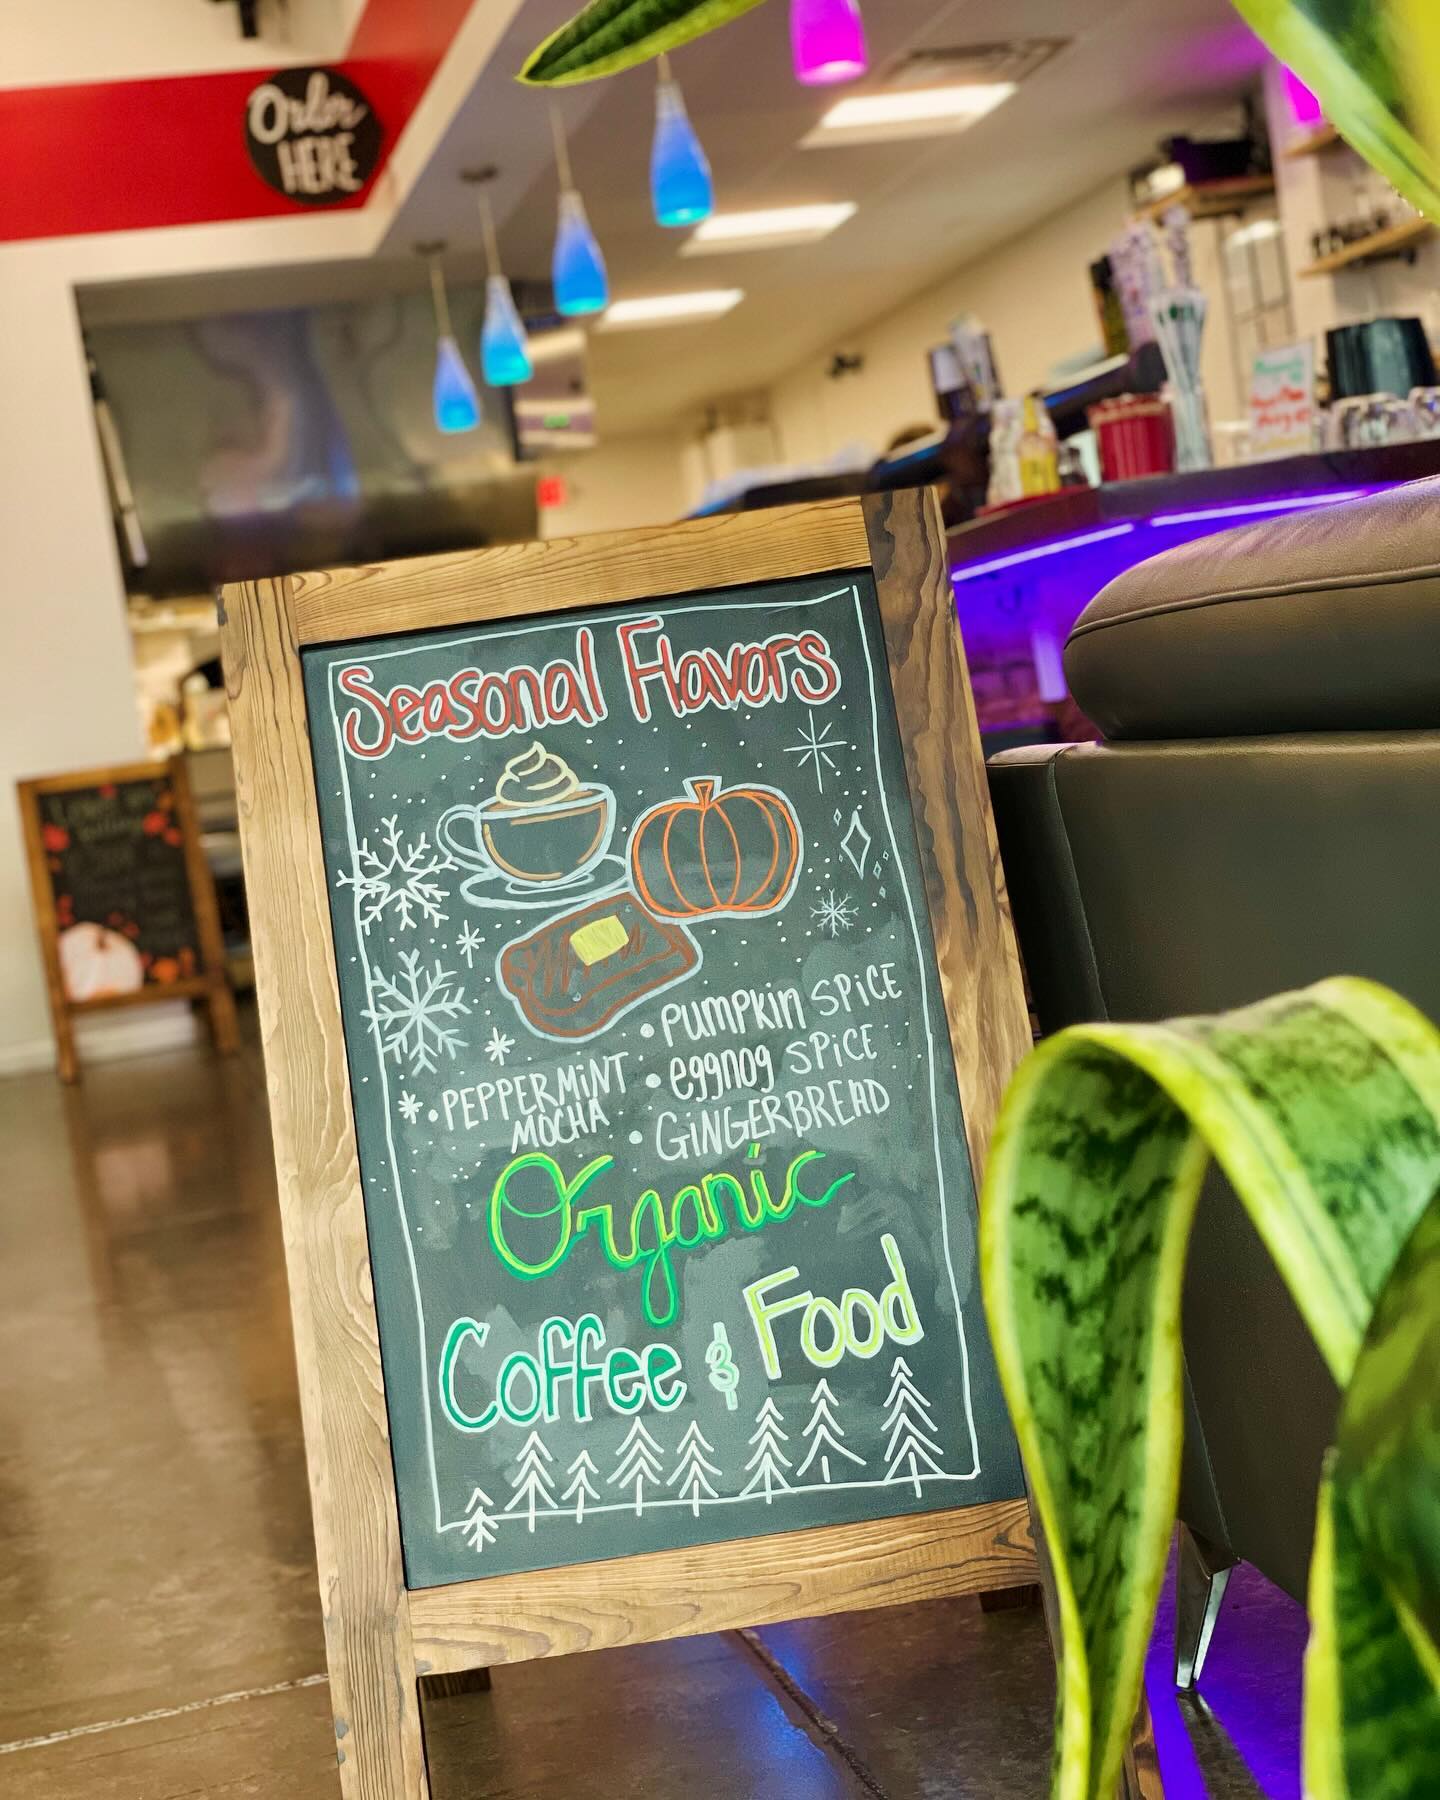 Order
HERE
Seasonal Flavors
• PUMPKIN SPiCE
• eggnog SPiCE
• GiNGERBREAD
• PEPPERMiNT
MOCHA
Organic
Coffee & Food